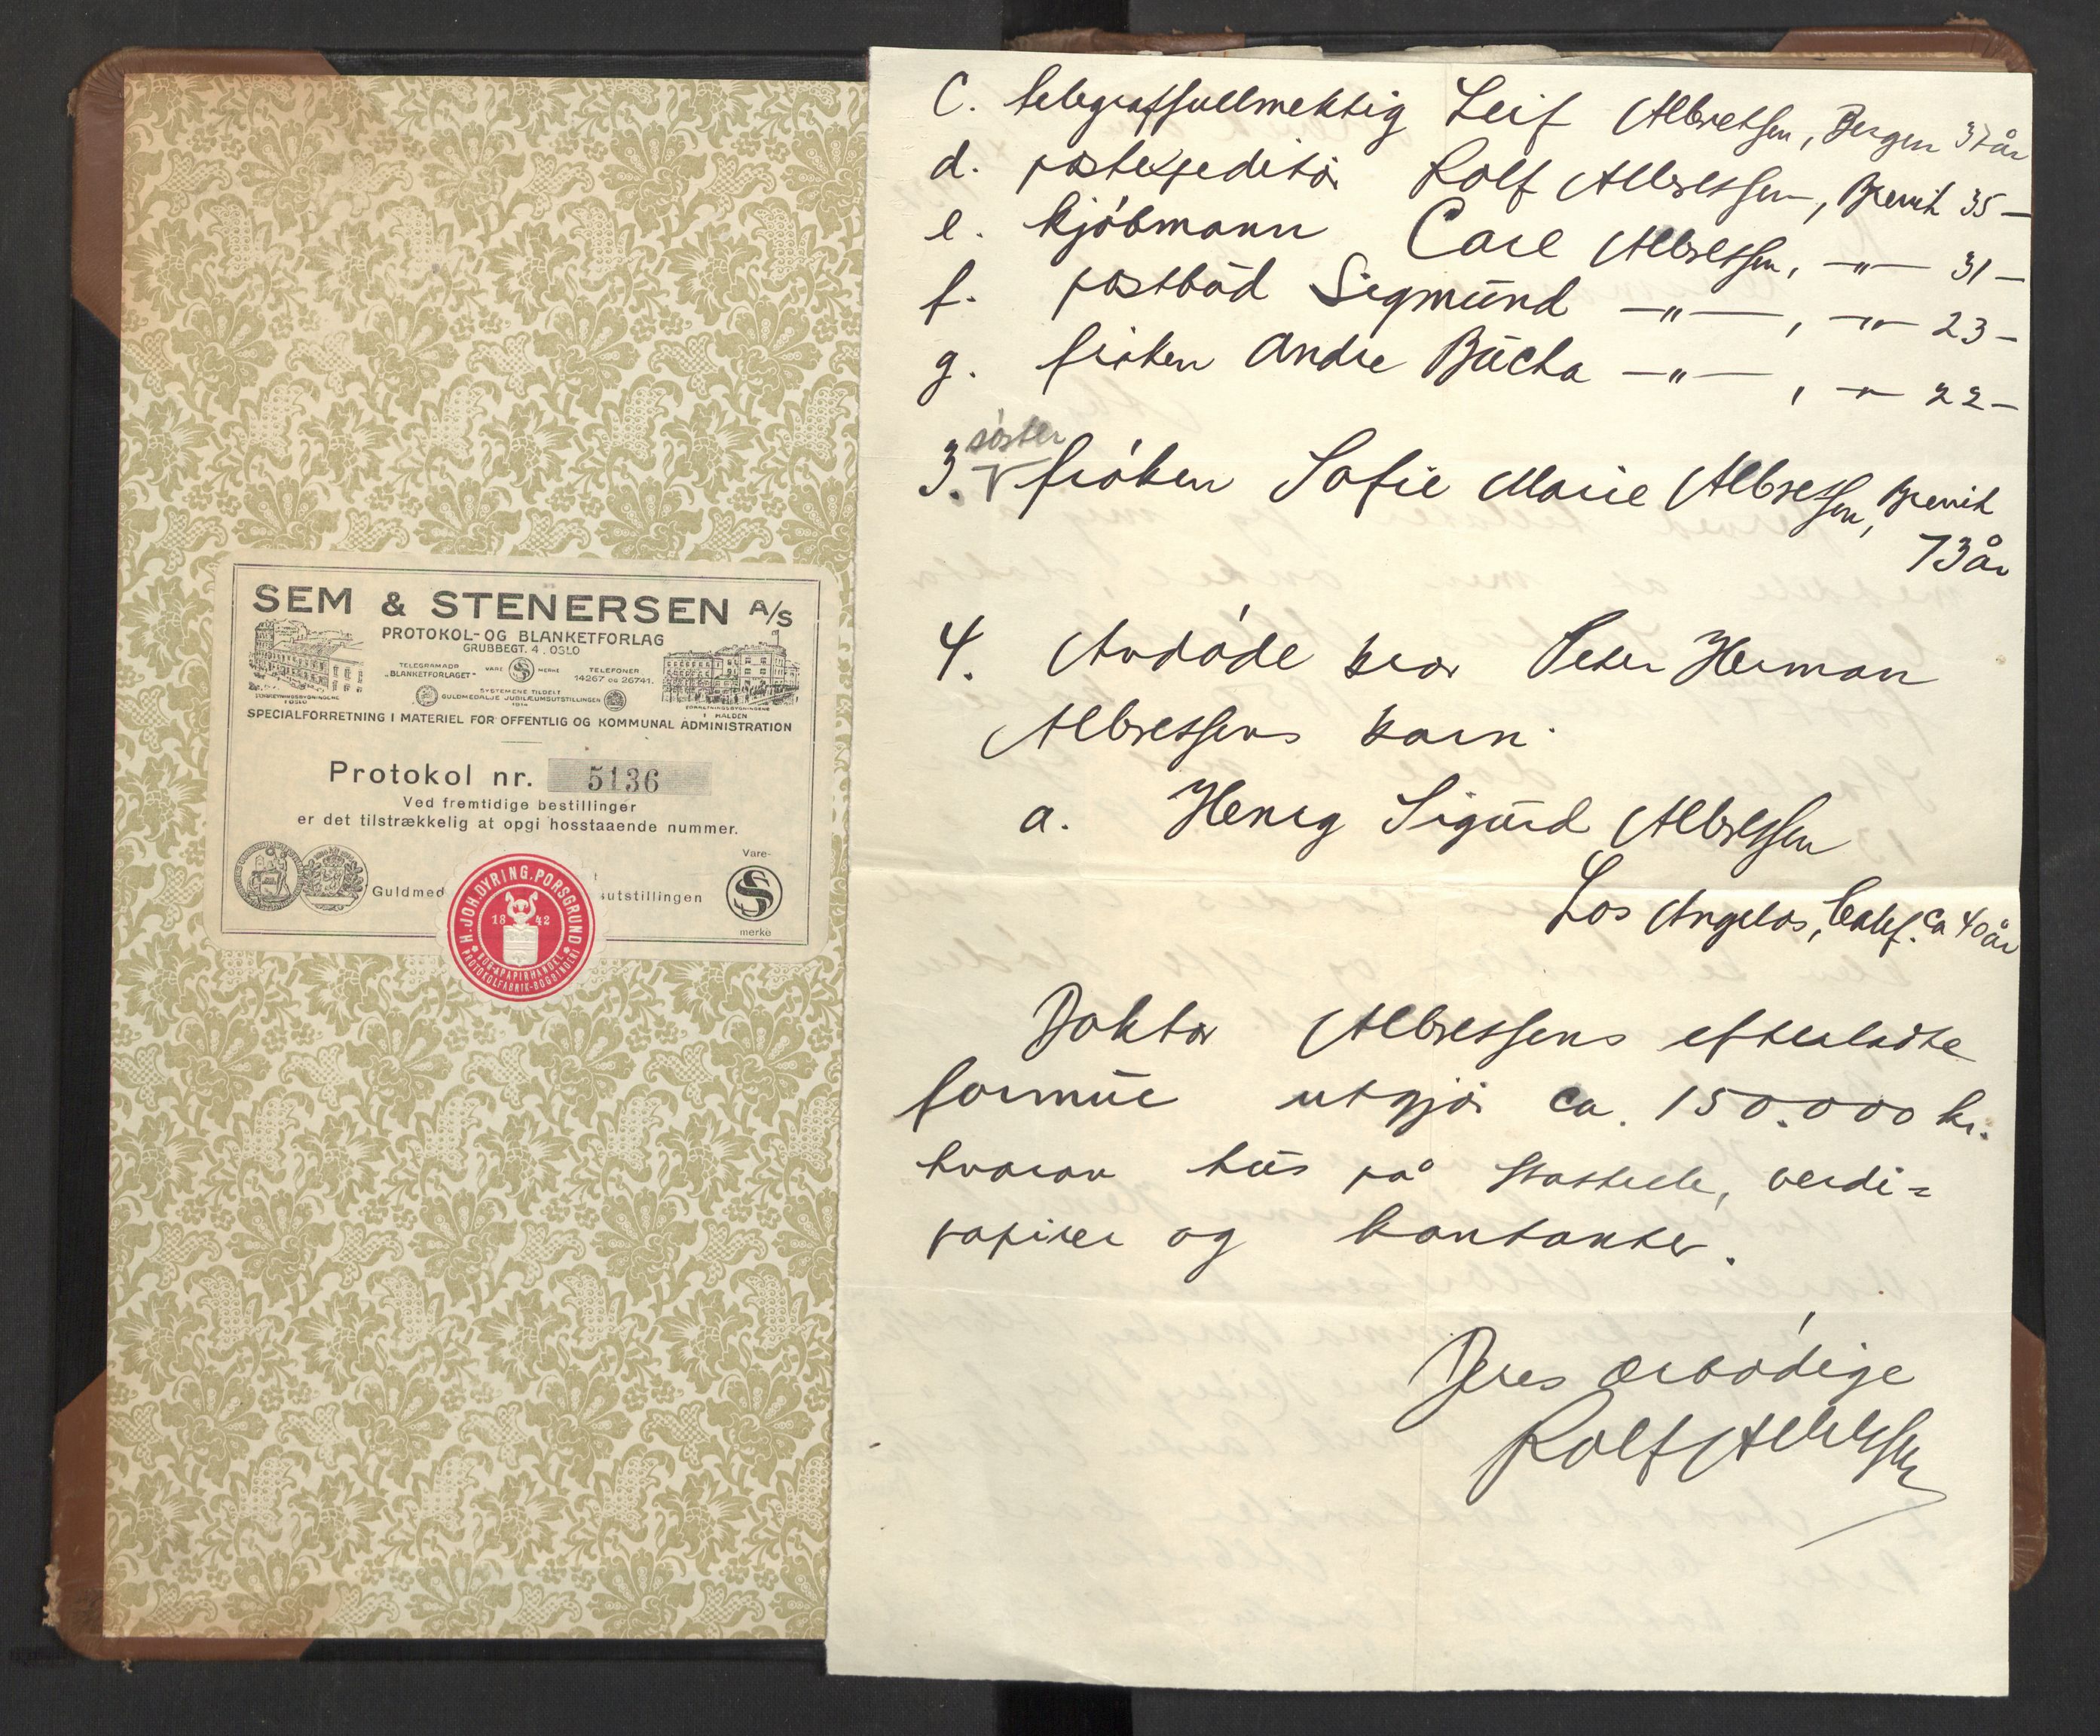 SEM & STENERSEN A/S
PROTOKOL- OG BLANKETFORLAG
GRUBBEGT. 4, OSLO
TELEGRAMADR
„BLANKETFORLAGET"
VARE S MERKE
TELEFONER
14267 OG 26741.
SYSTEMENE TILDELT
GULDMEDALJE JUBILÆUMSUTSTILLINGEN
1914
FORRETNINGSBYGNINGENE
I OSLO
FORRETNINGSBYGNINGENE
I HALDEN
SPECIALFORRETNING I MATERIEL FOR OFFENTLIG OG KOMMUNAL ADMINISTRATION
Protokol nr. 5136
Ved fremtidige bestillinger
er det tilstrækkelig at opgi hosstaaende nummer.
Guldmed
sutstillingen
Vare-
S
merke
H. JOH. DYRING. PORSGRUND
1842
BOK & PAPIRHANDEL
PROTOKOLFABRIK-BOGBINDERI
C. telegraffullmektig Leif Albretsen, Bergen 37 år
d. postexpeditør Rolf Albretsen, Brevik 35 —
e. kjøbmann Carl Albretsen, —"— 31 —
f. postbud Sigmund —"—, —"— 23 —
g. frøken Andre Bucha —"—, —"— 22 —
søster
3. V frøken Sofie Marie Albretsen, Brevik
73 år
4. Avdøde bror Peter Herman
Albretsens barn.
a. Henry Sigurd Albretsen
Los Angelos, Calif. ca 40 år
Doktor Albretsens efterladte
formue utgjør ca. 150.000 kr.
hvorav hus på Stathelle, verdi=
papirer og kontanter.
Deres ærbødige
Rolf Albretsen